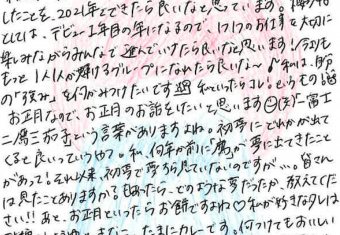 したことを、2021年とできたら良いなと思っています。
としては、デビュー1年目の年になるので、1つ1つのお仕事を大切に
楽しみながらみんなで進んでいけたら良いなと思います!今よりも
もっと1人1人が輝けるグループになれたら良いな〜♪私は、自分
の「強み」を何かみつけたいです
お正月なので、お正月のお話をしたいと思います 一富士
二鷹三茄子という言葉がありますよね。初夢でどれかがでて
くると良いっていうやつ。私、何年か前に「鷹」が夢に出てきたこと
があって!それ以来、初夢で夢すら見ていないのですが…。皆さん
は見たことありますか?もしあったら、どのような夢だったか、教えてくだ
さい!!あと、お正月といったらお餅ですよね♡私が好きなタレは
きなこ、たまにカレーです。何つけてもおいしい